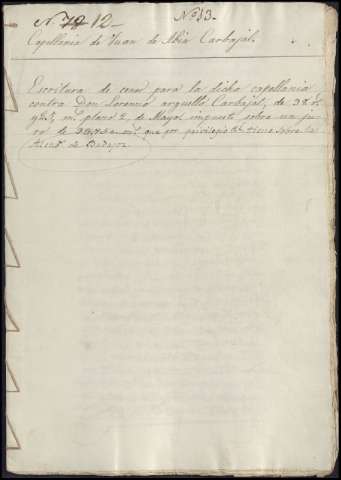 N. 12 12- Nº 13.
Capellania de Juan de Abia Carbajal.
Escritura de censo para la dicha capellania
contra Don Lorenzo arguello Carbajal, de 38 rs
y 25 ms plazo 2 de Mayo impuesto sobre un ju-
ro de que por privilegio tiene sobre las
de Badajoz